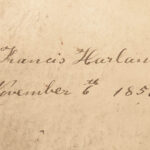 Francis Harlan
November 6th 185